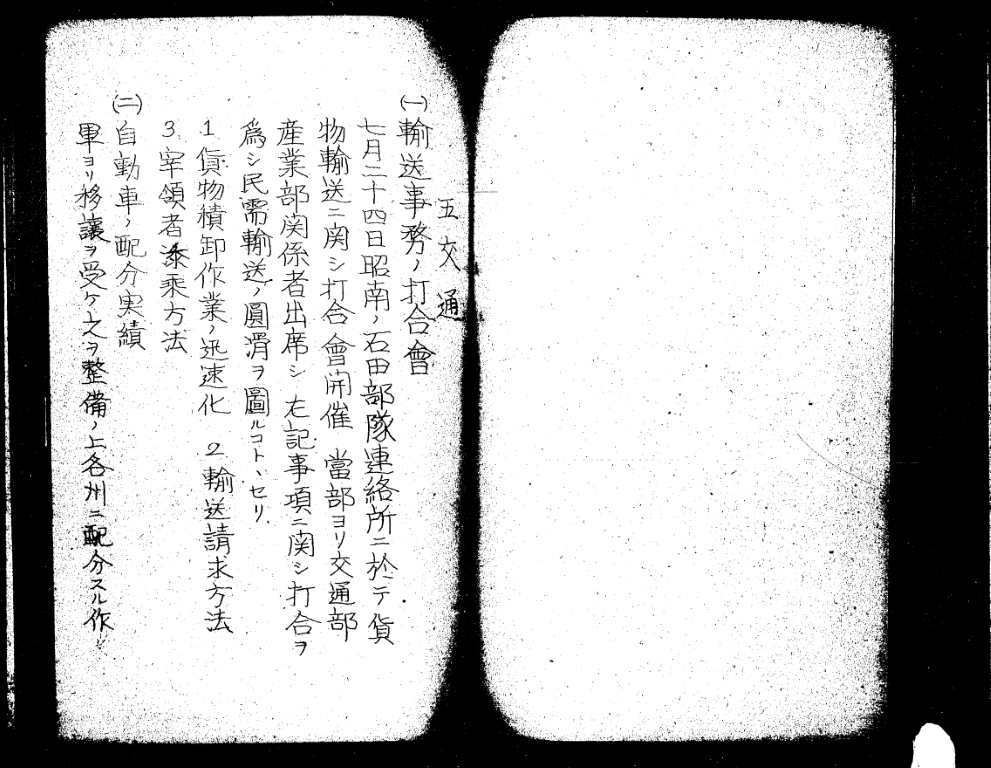 五 交通
(一)輸送事務ノ打合會
七月二十四日昭南ノ石田部隊連絡所ニ於テ貨
物輸送ニ関シ打合會開催 當部ヨリ交通部
産業部関係者出席シ左記事項ニ関シ打合ヲ
爲シ民需輸送ノ圓滑ヲ圖ルコトヽセリ
1 貨物積卸作業ノ迅速化 2 輸送請求方法
3 宰領者添乗方法
(二)自動車ノ配分実績
軍ヨリ移譲ヲ受ケ之ヲ整備ノ上各州ニ配分スル作